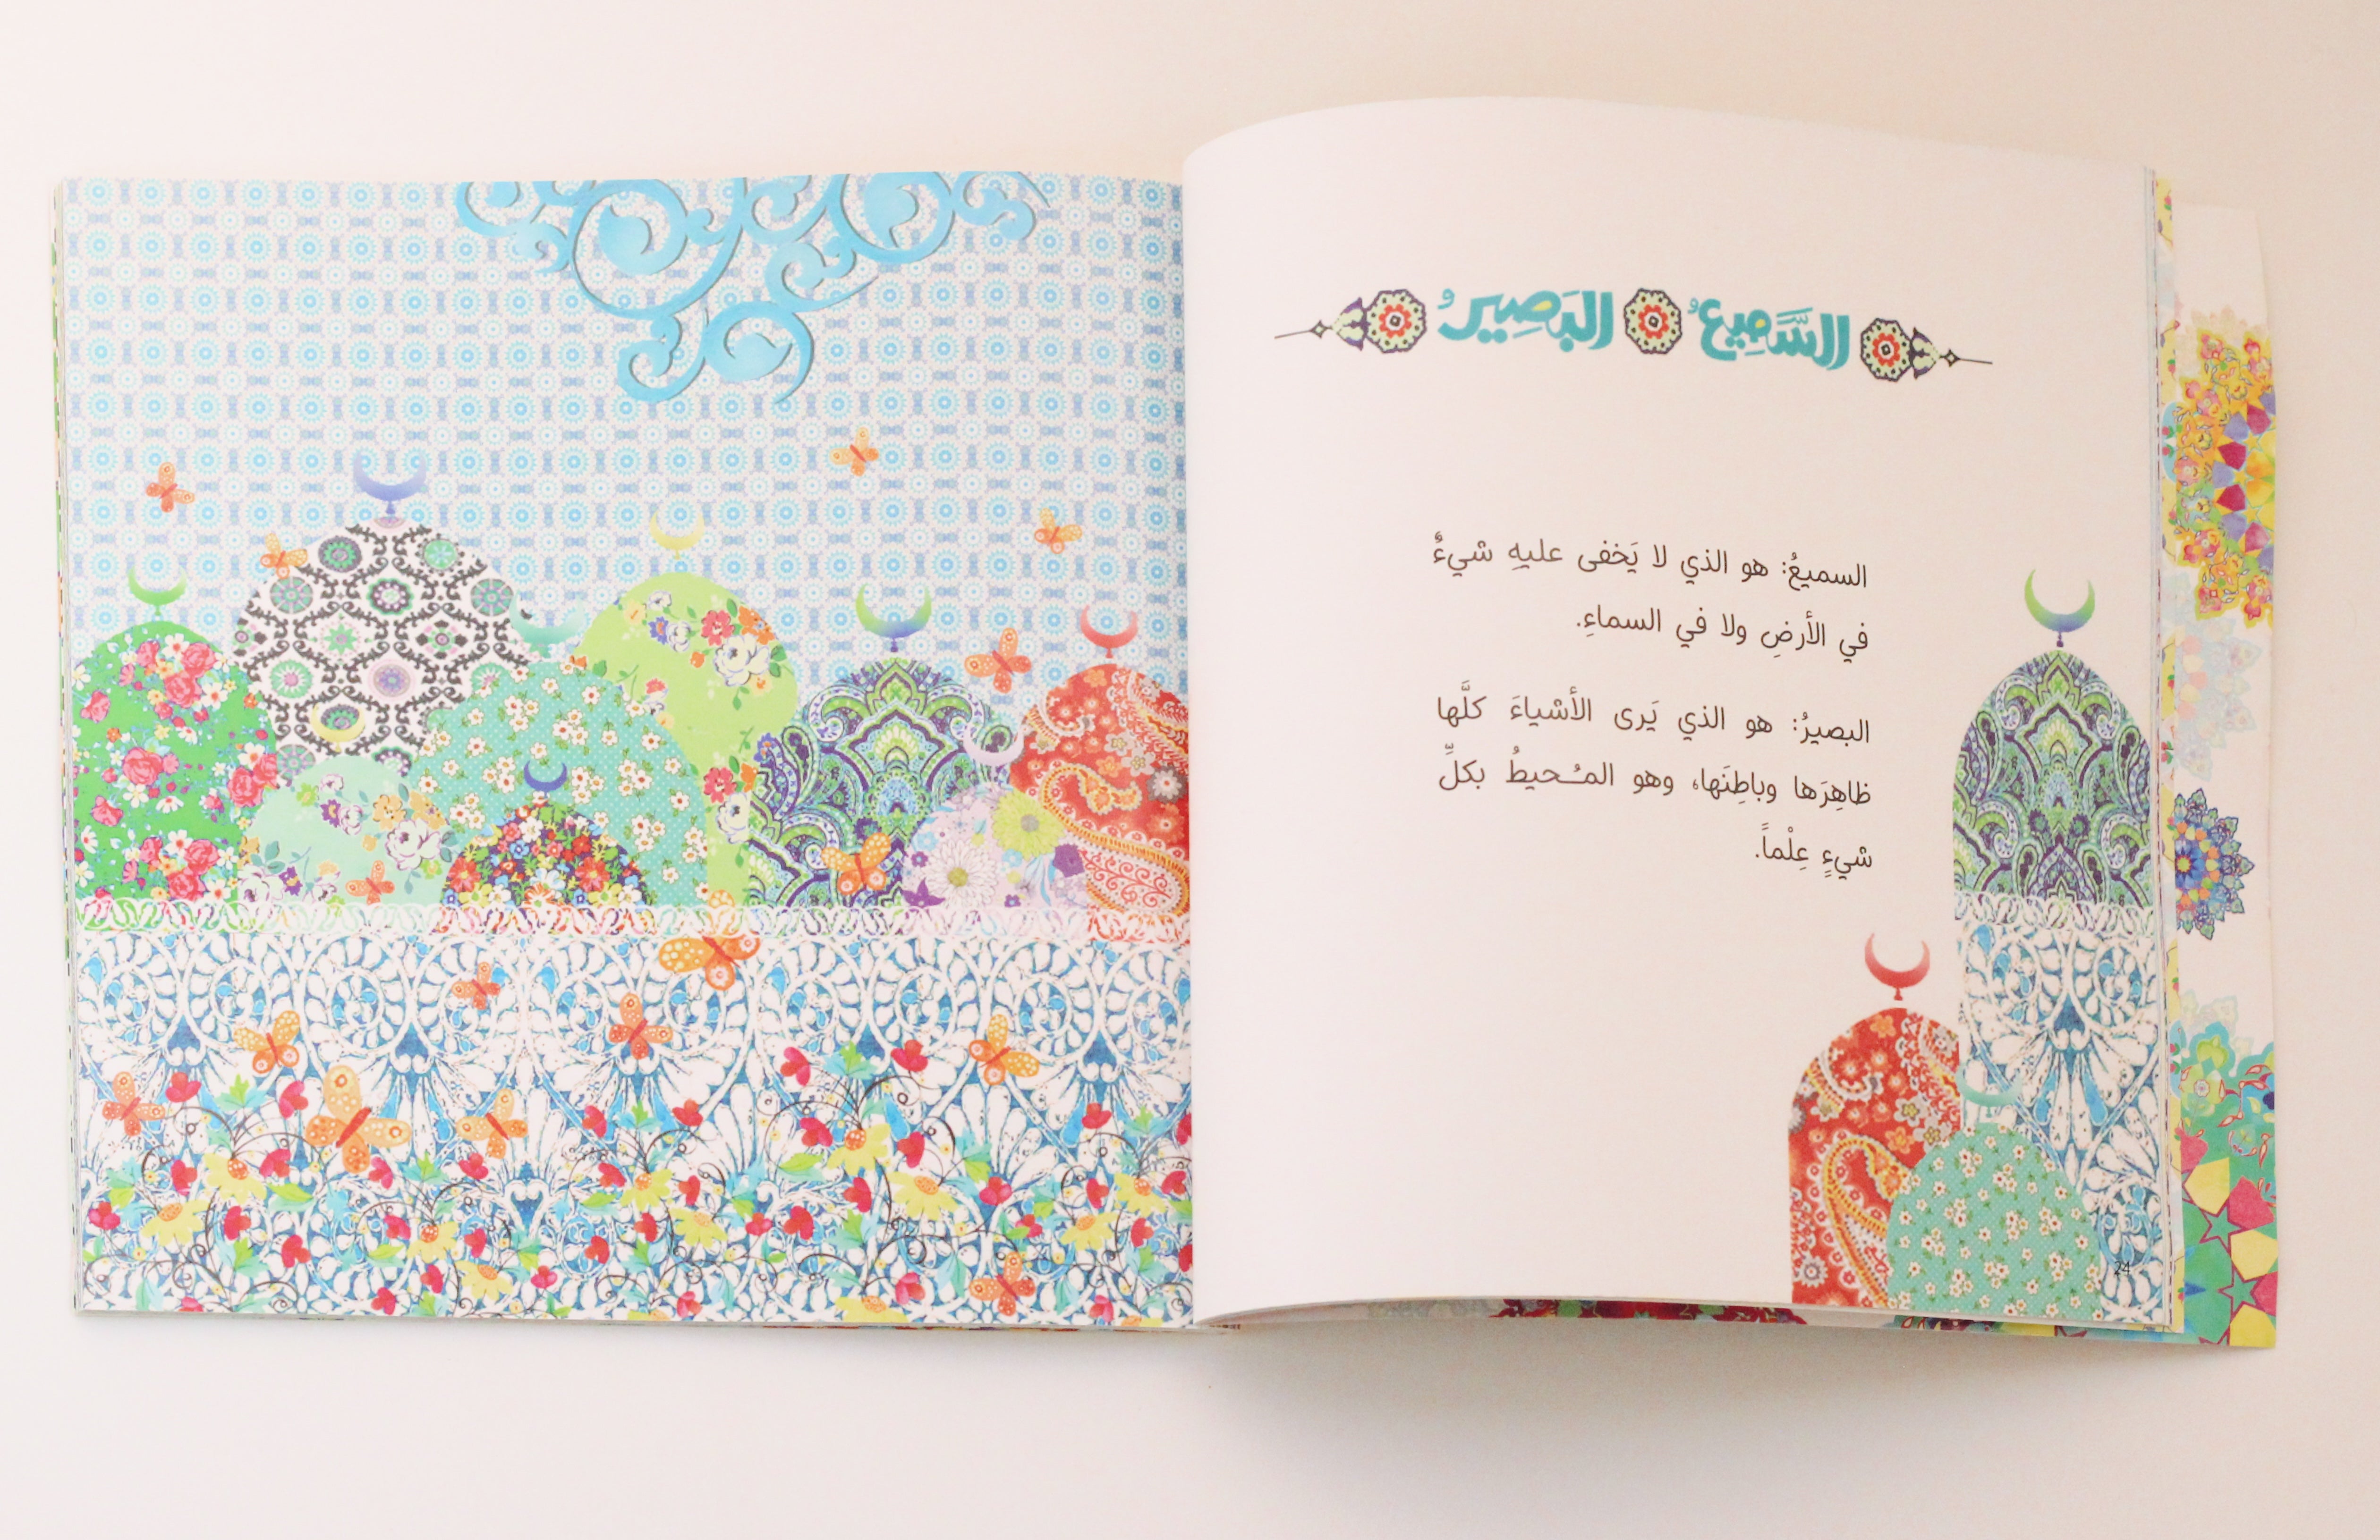 السَّمِيعُ البَصِيرُ
السميعُ: هو الذي لا يَخفى عليهِ شيءٌ
في الأرضِ ولا في السماءِ.
البصيرُ: هو الذي يَرى الأشياءَ كلَّها
ظاهِرَها وباطِنَها، وهو المـُـحيطُ بكلِّ
شيءٍ عِلْماً.
24